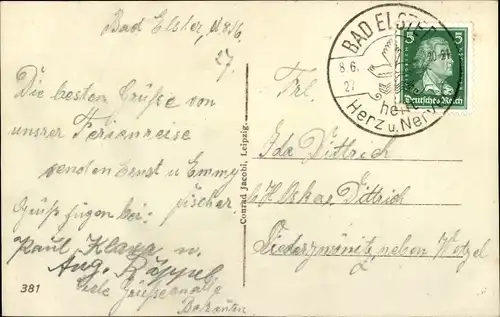 Bad Elster, d. 8/6.
27.
Die besten Grüße von
unsrer Ferienreise
senden Ernst u. Emmy
Fischer.
Grüße fügen bei:
Paul Klara u.
Aug. Röppel
Viele Grüße an alle
Bekannten
381
Conrad Jacobi, Leipzig.
BAD ELSTER
8.6.
27
heilt
Herz u. Nerv
5 5
Deutsches Reich
Frl.
Ida Dittrich
b. H. Oskar Dittrich
Niederzwönitz, neben